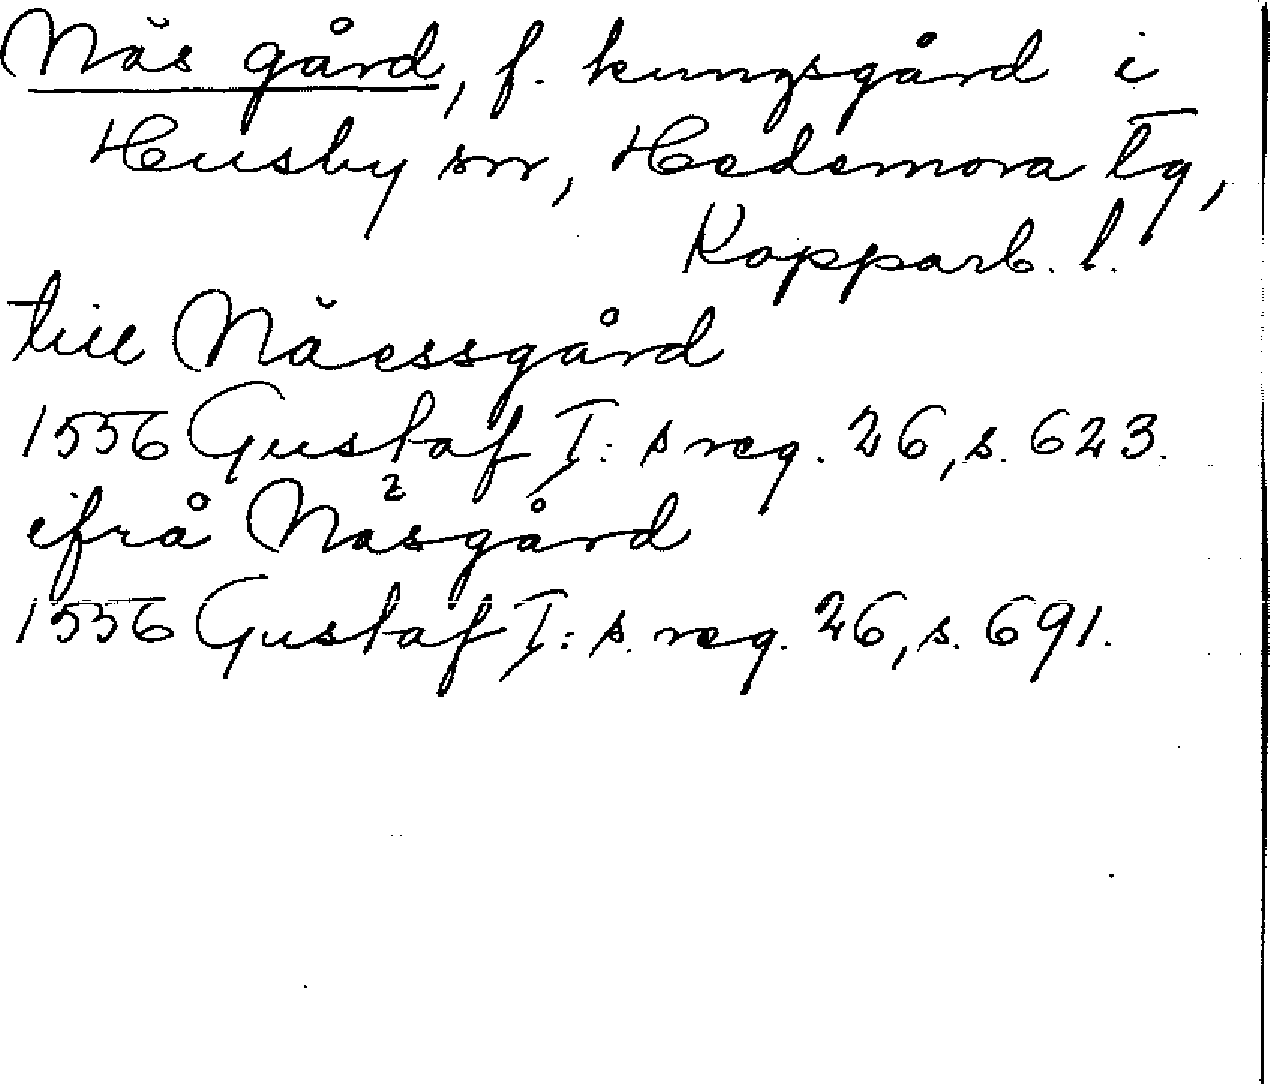 Näs gård, f. kungsgård i
Husby sn, Hedemora tg,
Kopparb. l.
till Näessgård
1556 Gustaf I: s reg. 26, s. 623.
ifrå Näsgård
1556 Gustaf I: s. reg. 26, s. 691.